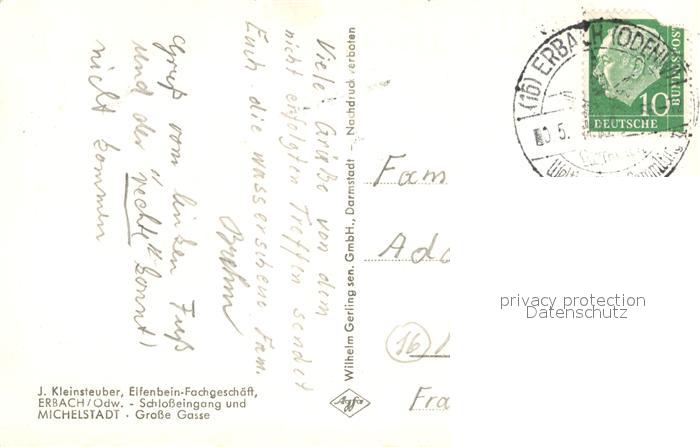 Viele Grüße von dem
nicht erfolgten Treffen sendet
Euch die wasserscheue Fam.
Brehm
Gruß vom linken Fuß
und der "rechte" konnt'
nicht kommen
J. Kleinsteuber, Elfenbein-Fachgeschäft,
ERBACH/Odw. - Schloßeingang und
MICHELSTADT · Große Gasse
Wilhelm Gerling sen. GmbH., Darmstadt — Nachdruck verboten
Agfa
(16) ERBACH (ODENW
5.
10
DEUTSCHE
BUNDESPOST
Fam
Ado
16
Fra
privacy protection
Datenschutz